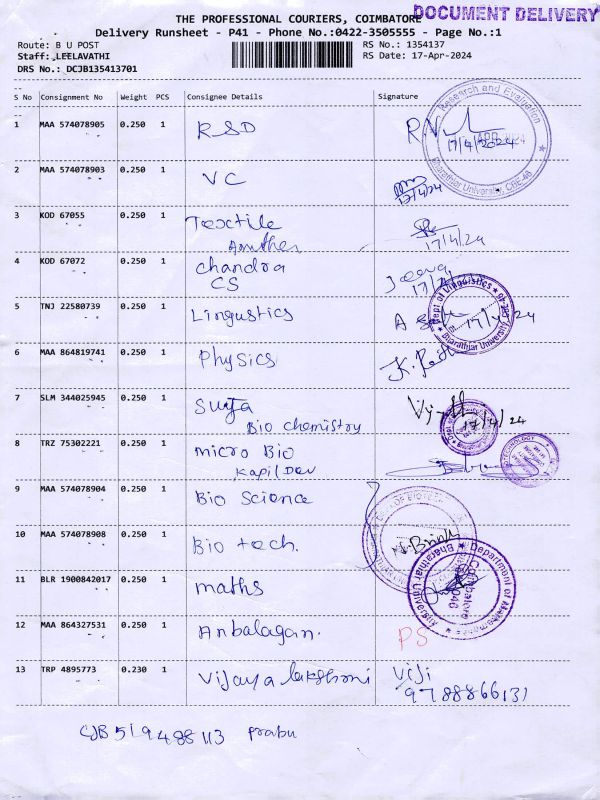 DOCUMENT DELIVERY
THE PROFESSIONAL COURIERS, COIMBATORE
Delivery Runsheet - P41 - Phone No.:0422-3505555 - Page No.:1
Route: B U POST
RS No.: 1354137
Staff: LEELAVATHI
RS Date: 17-Apr-2024
DRS No.: DCJB135413701
S No Consignment No Weight PCS Consignee Details Signature
1 MAA 574078905 0.250 1 RSD
17/4/2024
Research and Evaluation
Bharathiar University, CBE-46
2 MAA 574078903 0.250 1 VC
17/4/24
3 KOD 67055 0.250 1 Textile
17/4/24
4 KOD 67072 0.250 1 Chandra Jeeva
CS 17/4/24
5 TNJ 22580739 0.250 1 Lingustics 17/4/24
Dept of Linguistics
Bharathiar University
6 MAA 864819741 0.250 1 Physics
7 SLM 344025945 0.250 1
Bio chemistry 17/4/24
8 TRZ 75302221 0.250 1 micro Bio
Kapil Dev
9 MAA 574078904 0.250 1 Bio Science
10 MAA 574078908 0.250 1 Bio tech.
11 BLR 1900842017 0.250 1 maths
Department of Mathematics
Bharathiar University
Coimbatore
12 MAA 864327531 0.250 1 Anbalagan. PS
13 TRP 4895773 0.230 1 Vijaya lakshmi Viji
9788866131
CJB 519488113 Prabu